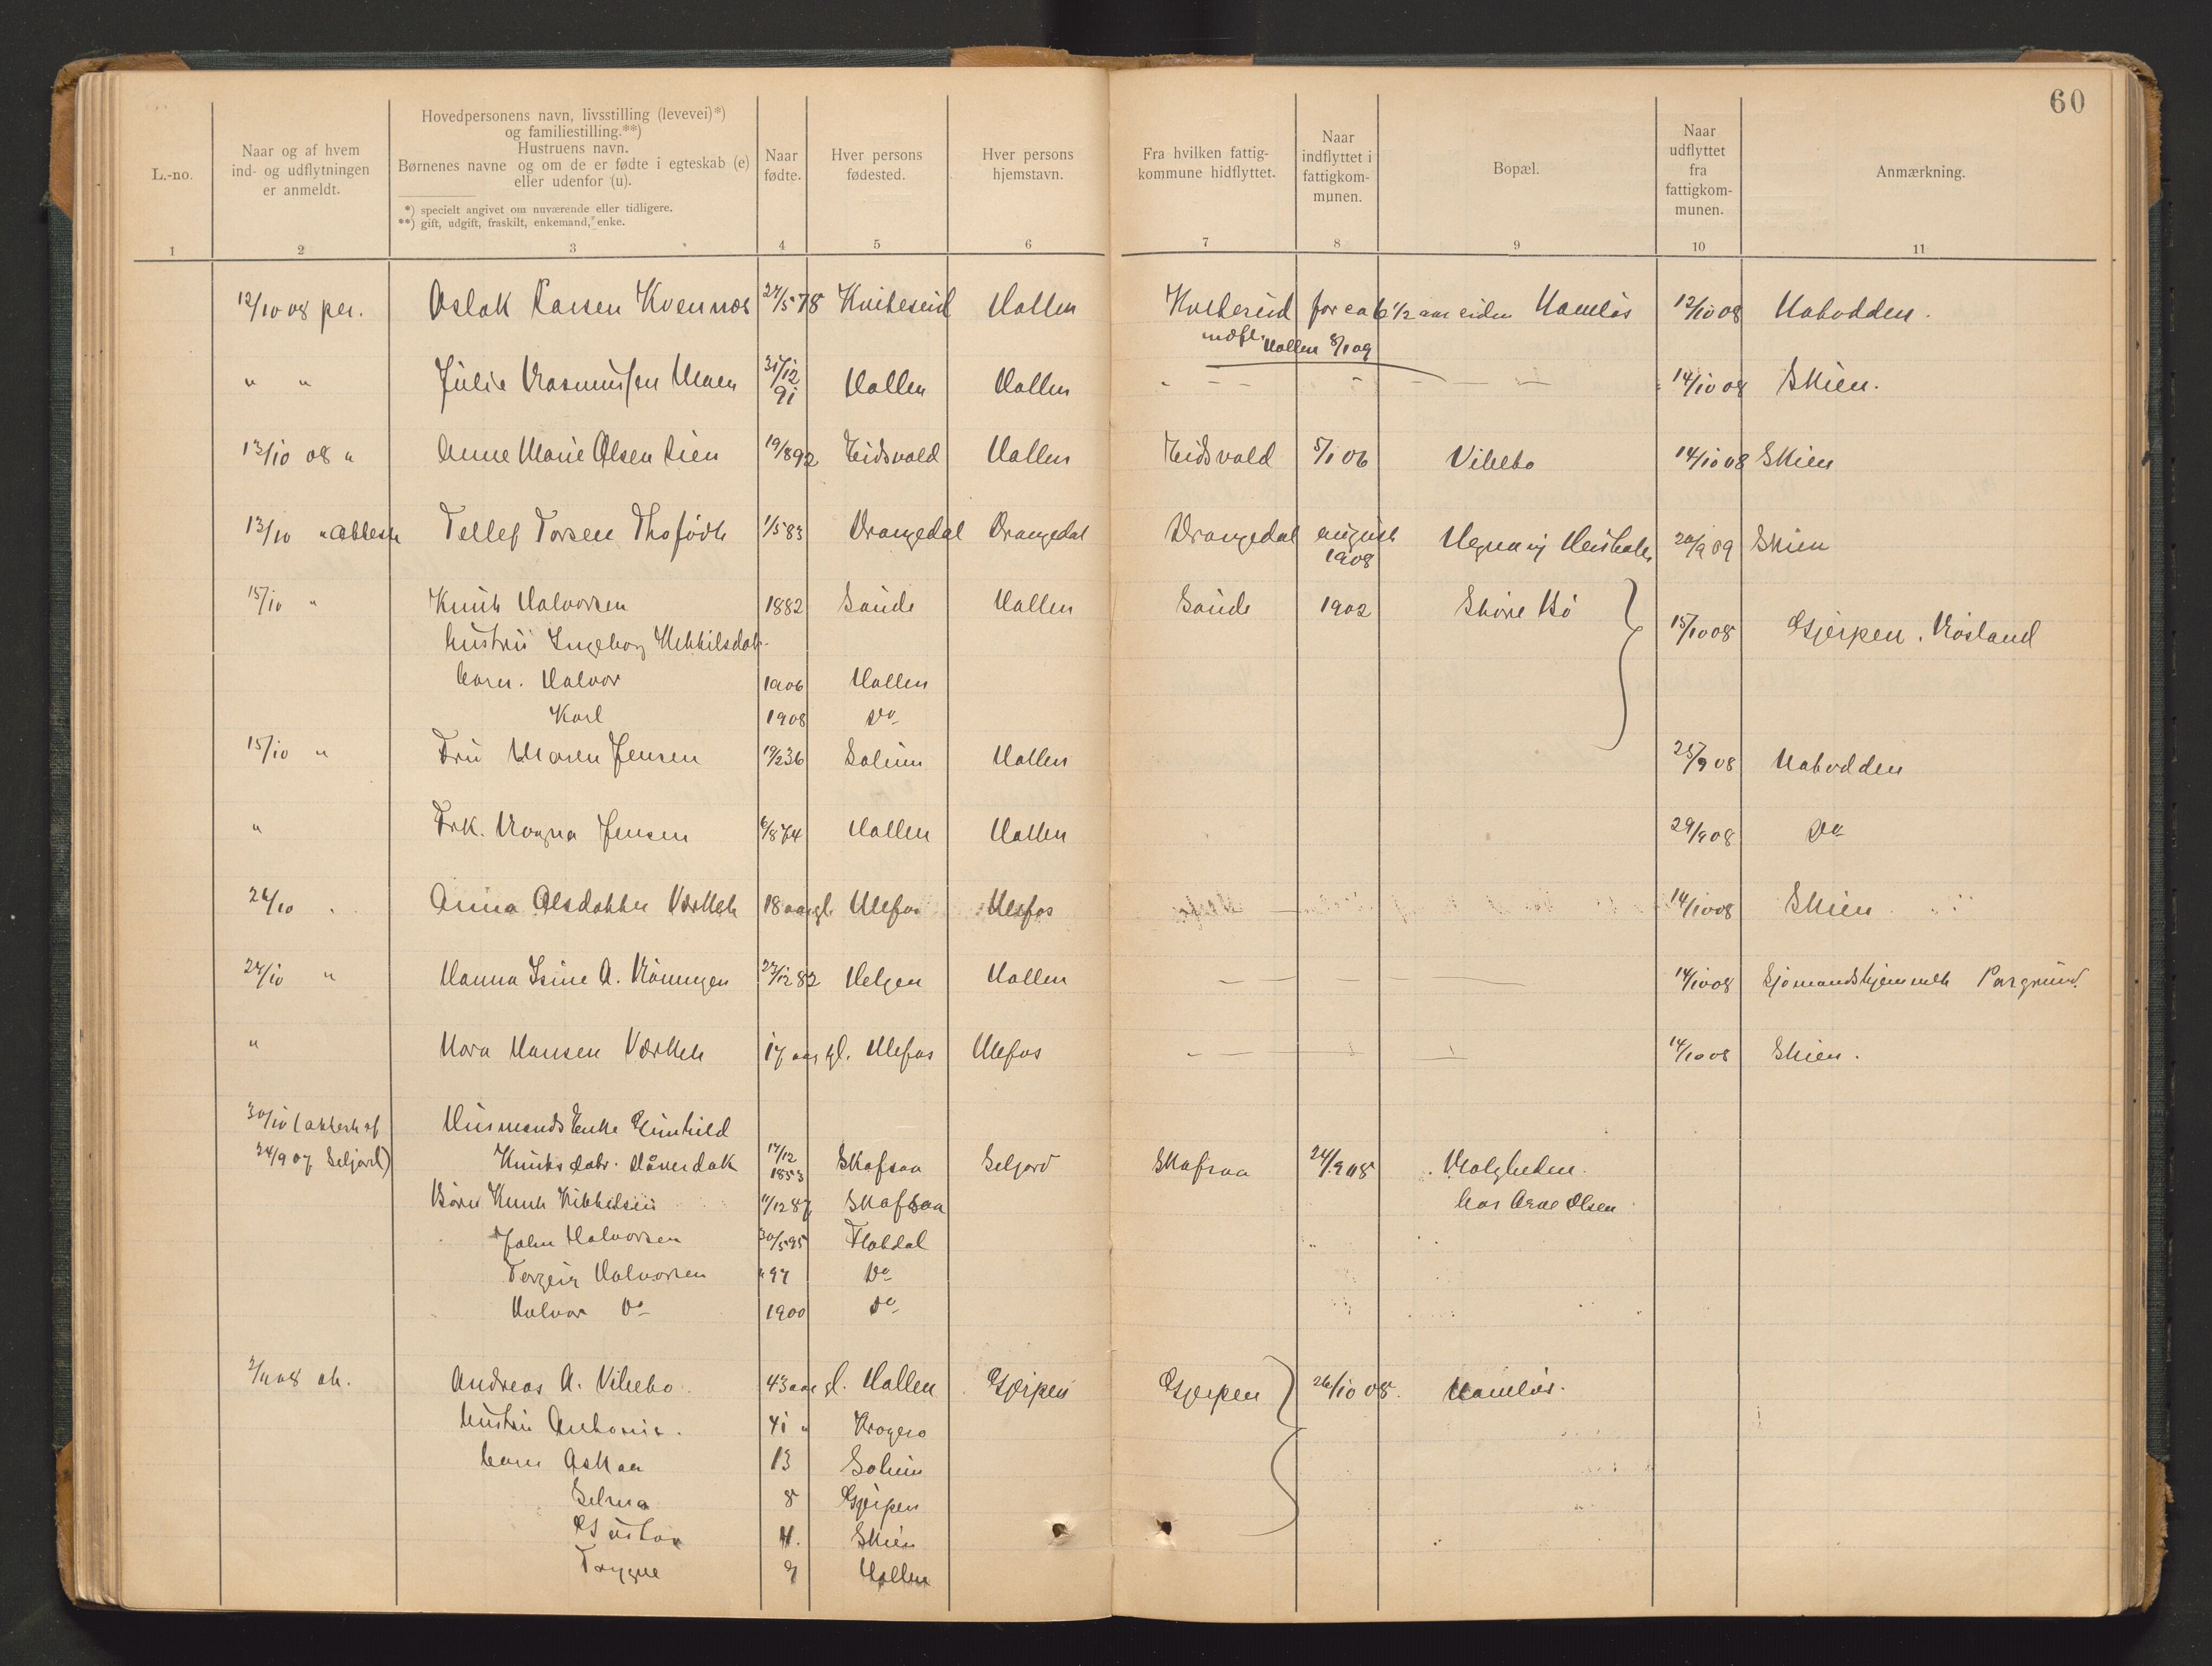 60
L.-no.
Naar og af hvem
ind- og udflytningen
er anmeldt.
Hovedpersonens navn, livsstilling (levevei)*)
og familiestilling.**)
Hustruens navn.
Børnenes navne og om de er fødte i egteskab (e)
eller udenfor (u).
*) specielt angivet om nuværende eller tidligere.
**) gift, udgift, fraskilt, enkemand, enke.
Naar
fødte.
Hver persons
fødested.
Hver persons
hjemstavn.
Fra hvilken fattig-
kommune hidflyttet.
Naar
indflyttet i
fattigkom-
munen.
Bopæl.
Naar
udflyttet
fra
fattigkom-
munen.
Anmærkning.
1 2 3 4 5 6 7 8 9 10 11
12/10 08 per. Aslak Larsen Kvennos 24/5 78 Kviteseid Hollen Kviteseid for ca 6 1/2 aar siden Namløs 12/10 08 Notodden.
indfl. Hollen 8/1 09
" " Julie Rasmussen Moen 31/12 91 Hollen Hollen 14/10 08 Skien.
13/10 08 " Anne Marie Olsen Lien 19/8 92 Eidsvold Hollen Eidsvold 5/1 06 Vibeto 14/10 08 Skien
13/10 " attest Tellef Torsen 1/5 83 Drangedal Drangedal Drangedal august 1908 20/9 09 Skien
15/10 " Knut Halvorsen 1882 Saude Hollen Saude 1902 Skøre Bø 15/10 08 Gjerpen. Røsland
hustru Ingeborg Kittilsdatr.
barn. Halvor 1906 Hollen
Karl 1908 Do
15/10 " Fru Maren Jensen 19/2 36 Solum Hollen 25/9 08 Notodden
" Frk. Magna Jensen 6/8 74 Hollen Hollen 29/9 08 Do
24/10 Anna Olsdatter Værket 18 aar gl. Ulefos Ulefos 14/10 08 Skien
24/10 " Hanna Isine A. Rønningen 27/12 82 Helgen Hollen 14/10 08 Sjømandshjemmet Porsgrund.
" Nora Hansen Værket 17 aar gl. Ulefos Ulefos 14/10 08 Skien.
30/10 (attest af Husmands Enke Gunhild
24/9 07 Seljord) Knutsdatr. 17/12 1853 Skafsaa Seljord Skafsaa 24/9 08
Børn Knut Kittilsen 11/12 87 Skafsaa hos Arne Olsen
John Halvorsen 30/5 95 Flatdal
Torgeir Halvorsen " 97 Do
Halvor Do 1900 Do
2/11 08 at. Andreas A. Vibeto. 43 aar gl. Hollen Gjerpen Gjerpen 26/10 08. Namløs.
hustru Antonie. 41 " Kragerø
barn Oskar 13 Solum
Selma 8 Gjerpen
Gustav 4. Skien
Trygve Hollen